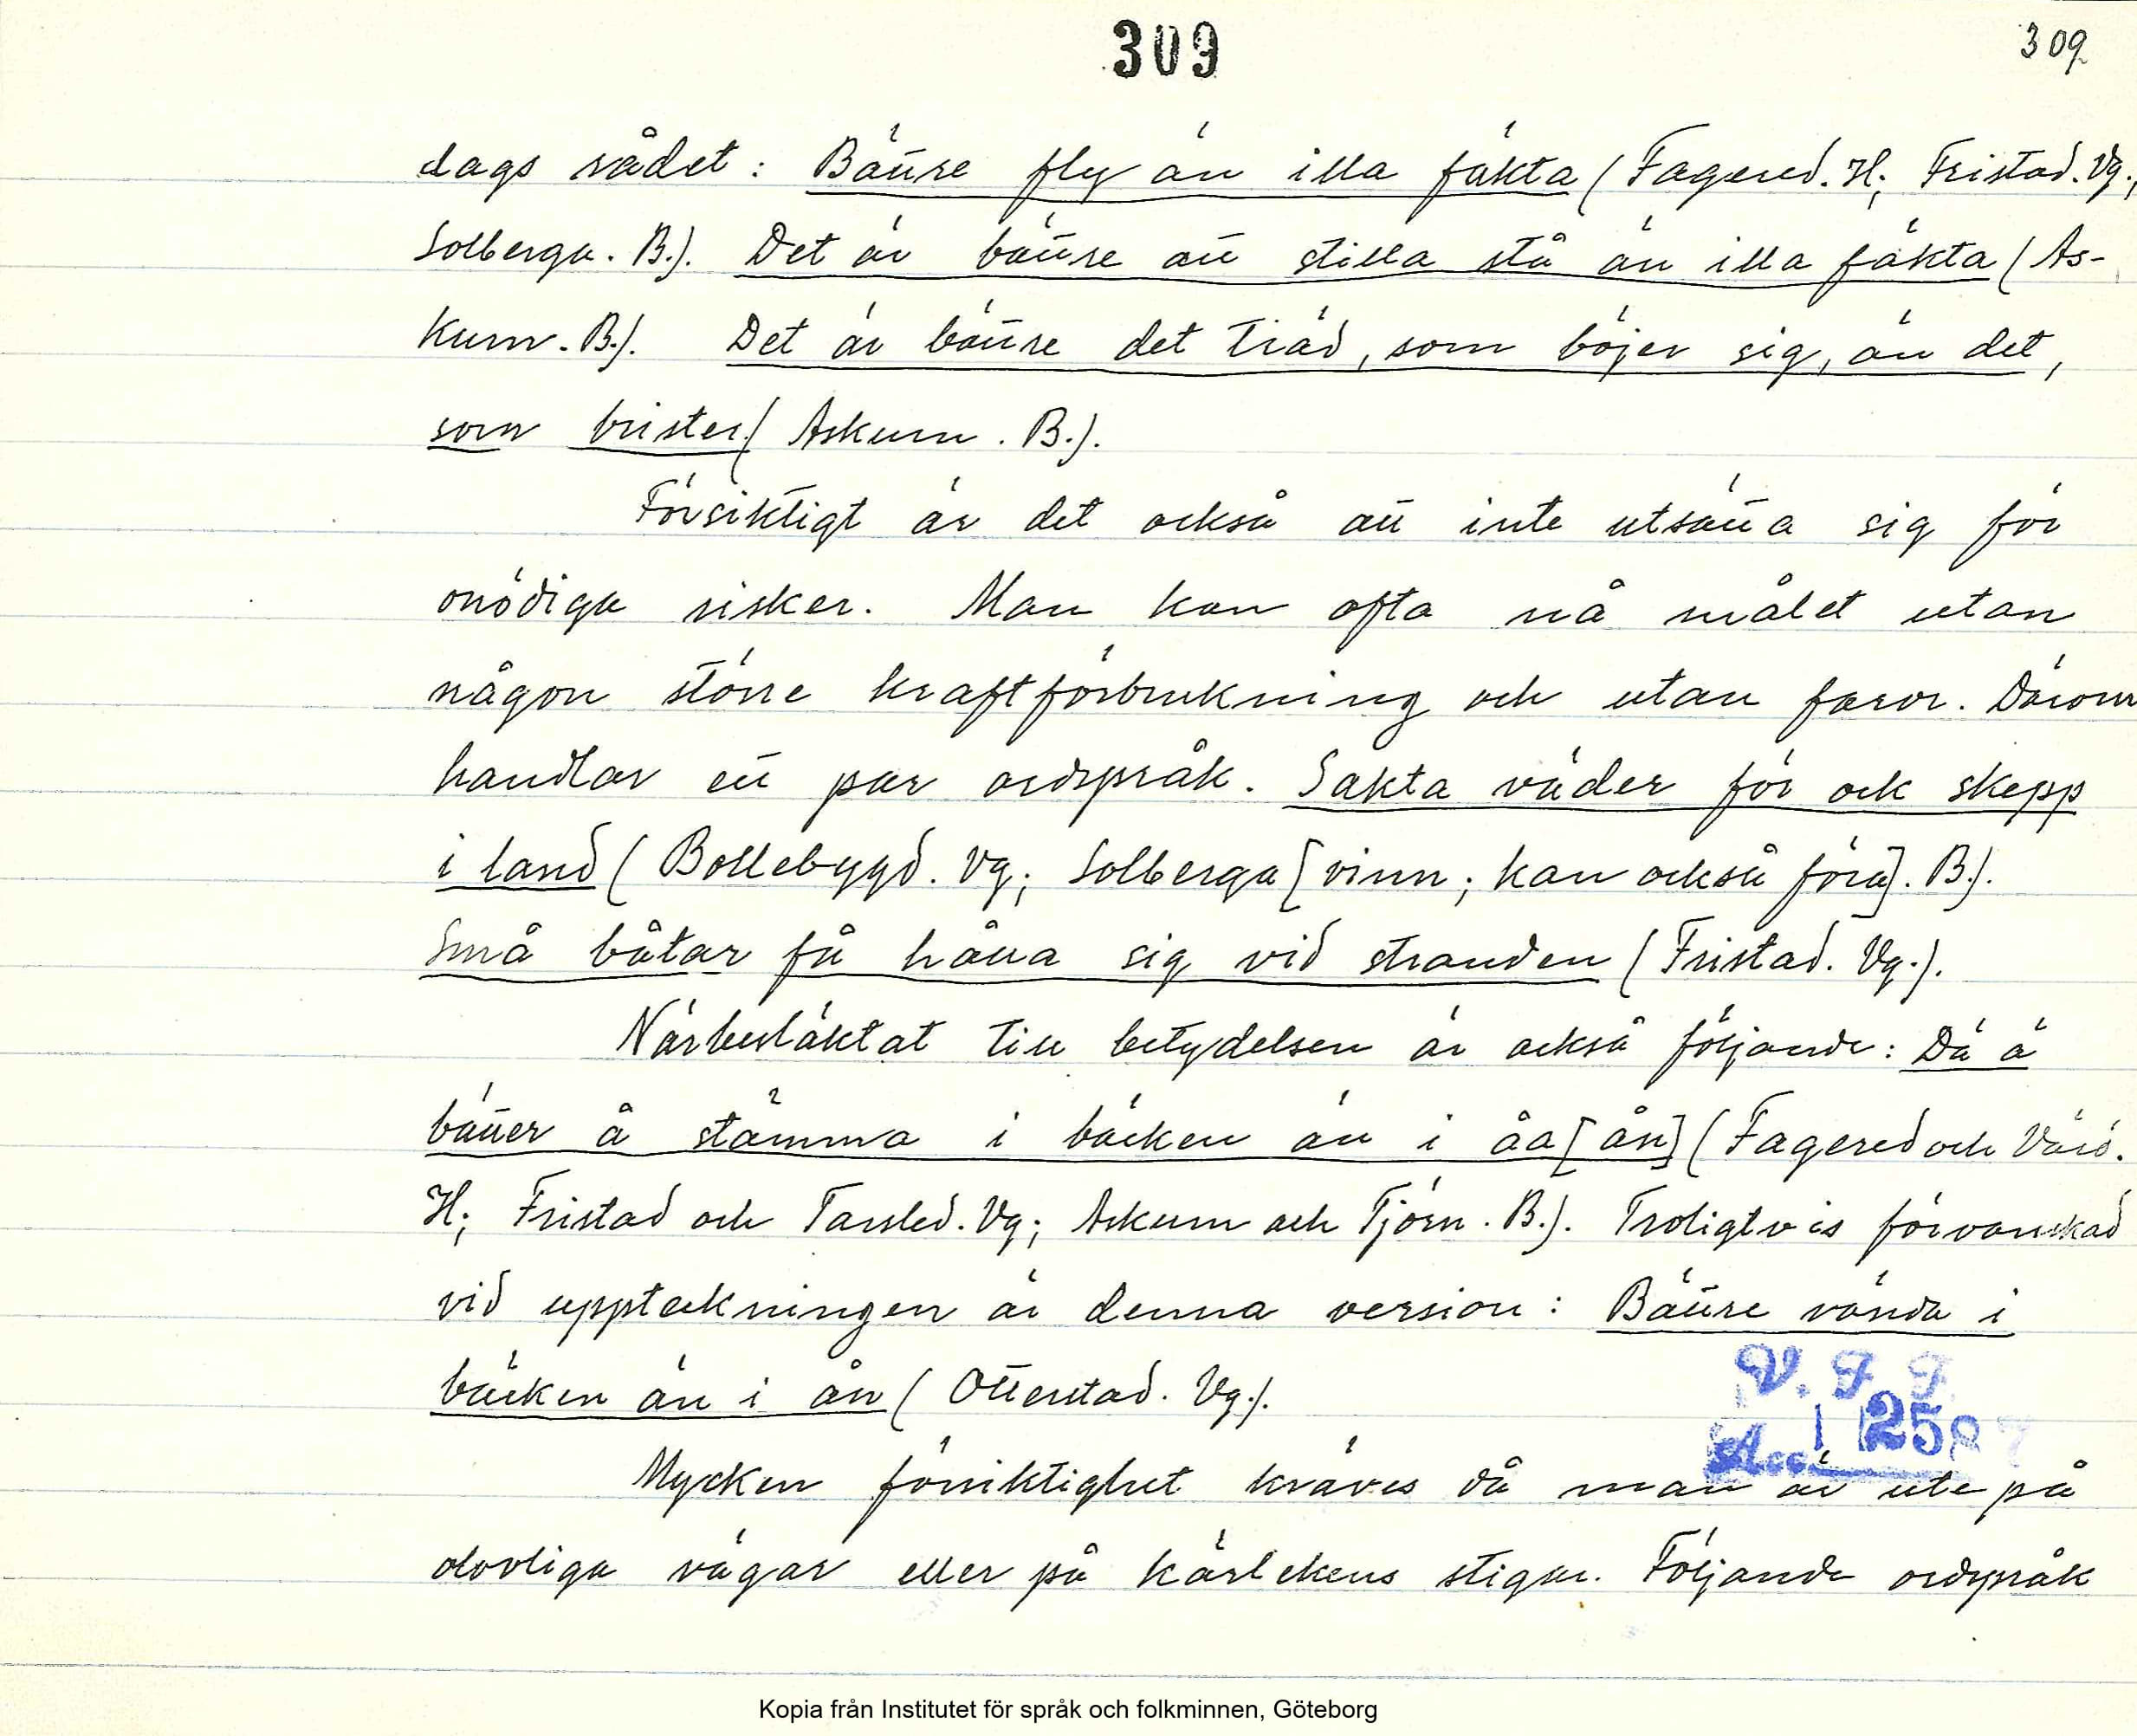 309
309
dags rådet: Bättre fly än illa fäkta (Fagered. H; Fristad. Vg.;
Solberga. B.). Det är bättre att stilla stå än illa fäkta (As-
kum. B.). Det är bättre det träd, som böjer sig, än det,
som brister (Askum. B.).
Försiktigt är det också att inte utsätta sig för
onödiga risker. Man kan ofta nå målet utan
någon större kraftförbrukning och utan faror. Därom
handlar ett par ordspråk. Sakta väder för ock skepp
i land (Bollebygd. Vg; Solberga [vinn; kan också föra]. B.).
Små båtar få hålla sig vid stranden (Fristad. Vg.).
Närbesläktat till betydelsen är också följande: Dä ä
bätter å stämma i bäcken än i åa [ån] (Fagered och Värö.
H; Fristad och Tarsled. Vg; Askum och Tjörn. B.). Troligtvis förvanskad
vid uppteckningen är denna version: Bättre vända i
bäcken än i ån (Otterstad. Vg.).
V. F.
Acc. 258
Mycken försiktighet kräves då man är ute på
olovliga vägar eller på kärlekens stigar. Följande ordspråk
Kopia från Institutet för språk och folkminnen, Göteborg